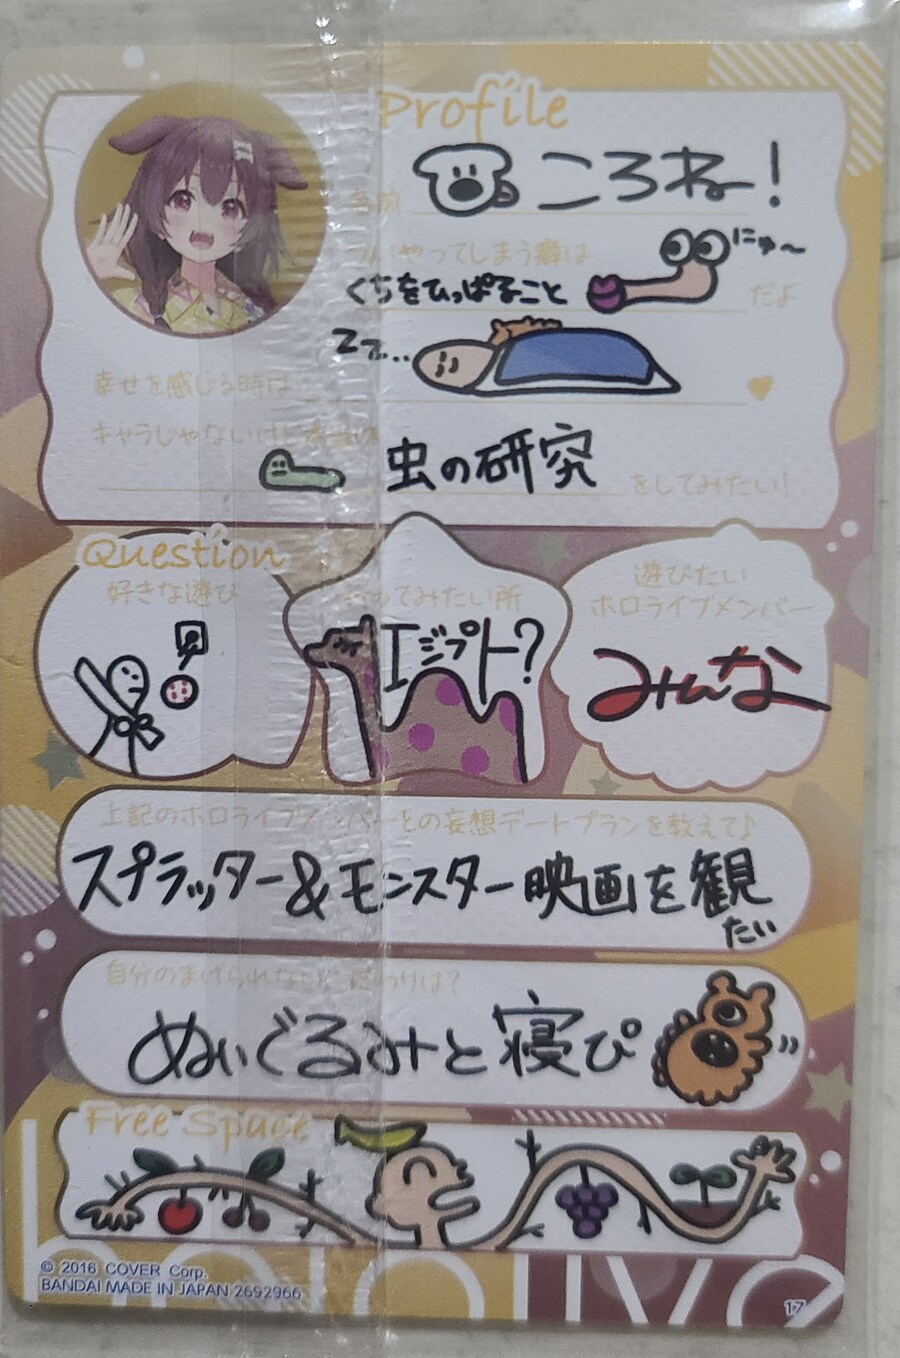 Profile
名前 ころね!
ついやってしまう癖は
にゅ〜
くちをひっぱること だよ
Zz...
幸せを感じる時は
キャラじゃないけど
虫の研究 をしてみたい!
Question
好きな遊び
行ってみたい所
エジプト?
遊びたい
ホロライブメンバー
みんな
上記のホロライブメンバーとの妄想デートプランを教えて♪
スプラッター&モンスター映画を観
たい
自分のまげられないこだわりは?
ぬいぐるみと寝ぴ
Free Space
hololive
© 2016 COVER Corp.
BANDAI MADE IN JAPAN 2692966
17